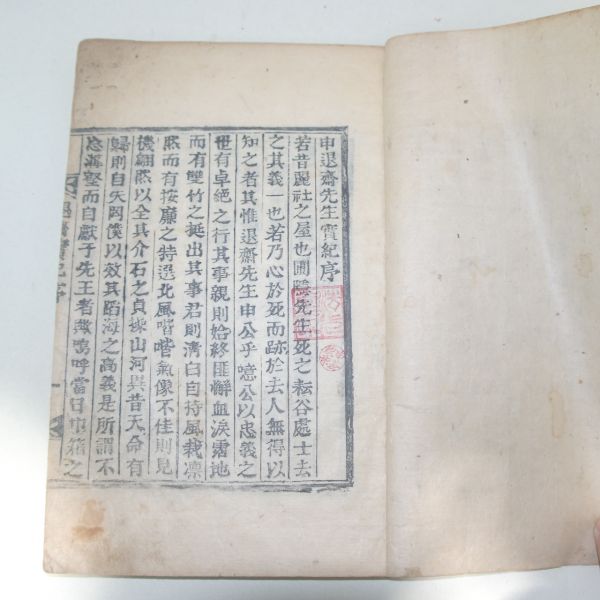 申退齋先生實紀序
若昔麗社之屋也圃隱先生死之耘谷處士去
之其義一也若乃心於死而跡於去人無得以
知之者其惟退齋先生申公乎噫公以忠義之
世有卓絶之行其事親則始終匪懈血淚霑地
而有雙竹之挺出其事君則淸白自持風栽凜
然而有按廉之特選北風喈喈氣像不佳則見
機翩然以全其介石之貞操山河異昔天命有
歸則自矢罔僕以效其蹈海之高義是所謂不
忘溝壑而自獻于先王者歟嗚呼當日巾箱之
退齋實紀序
一